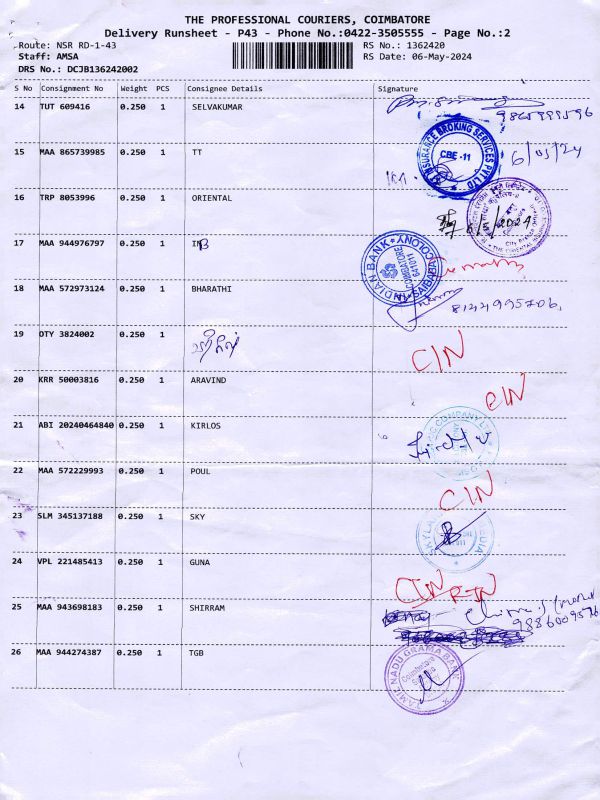 THE PROFESSIONAL COURIERS, COIMBATORE
Delivery Runsheet - P43 - Phone No.:0422-3505555 - Page No.:2
Route: NSR RD-1-43 RS No.: 1362420
Staff: AMSA RS Date: 06-May-2024
DRS No.: DCJB136242002
S No Consignment No Weight PCS Consignee Details Signature
14 TUT 609416 0.250 1 SELVAKUMAR
9865999596
INSURANCE BROKING SERVICES PVT LTD
CBE -11
15 MAA 865739985 0.250 1 TT 6/05/24
16 TRP 8053996 0.250 1 ORIENTAL
6/5/2024
17 MAA 944976797 0.250 1 INB
INDIAN BANK SAIBABA COLONY
COIMBATORE
641011
18 MAA 572973124 0.250 1 BHARATHI
8144995706
19 OTY 3824002 0.250 1 CIN
20 KRR 50003816 0.250 1 ARAVIND CIN
21 ABI 20240464840 0.250 1 KIRLOS
22 MAA 572229993 0.250 1 POUL CIN
23 SLM 345137188 0.250 1 SKY
24 VPL 221485413 0.250 1 GUNA CIN RTN
25 MAA 943698183 0.250 1 SHIRRAM
9886009576
26 MAA 944274387 0.250 1 TGB
TAMIL NADU GRAMA BANK
Coimbatore